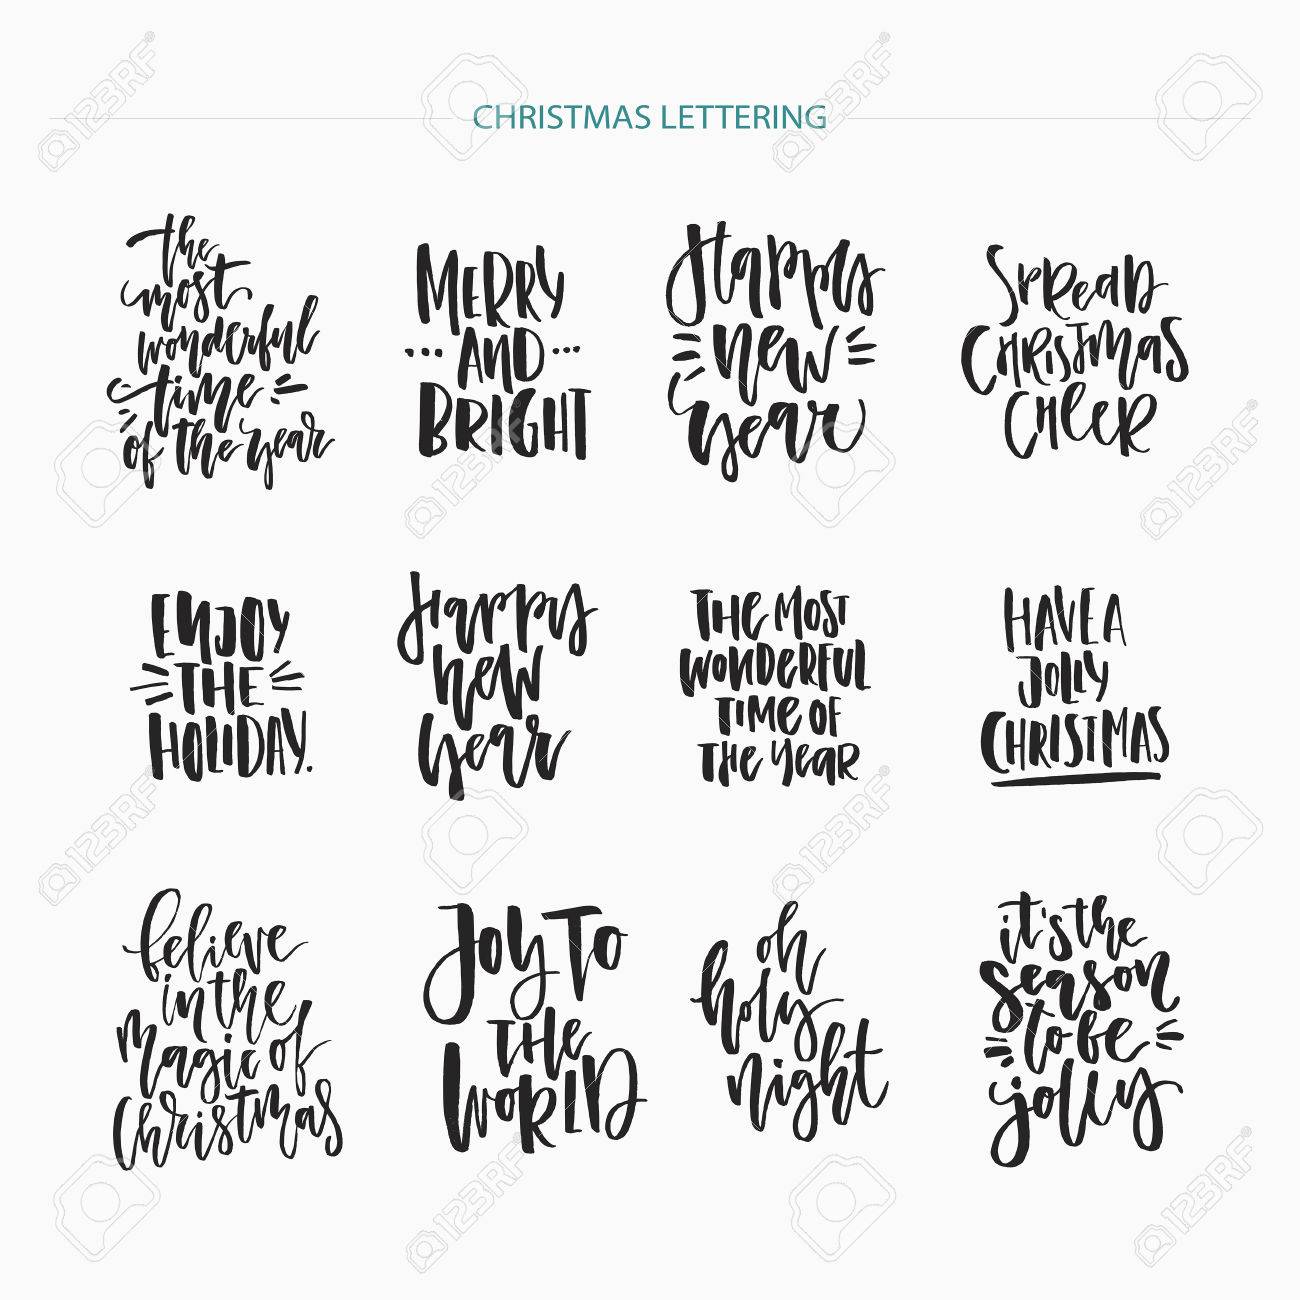 CHRISTMAS LETTERING
the
most
wonderful
time
of the year
MERRY
AND
BRIGHT
Happy
new
year
SPREAD
CHRISTMAS
CHEER
ENJOY
THE
HOLIDAY.
Happy
new
year
THE MOST
WONDERFUL
TIME OF
THE YEAR
HAVE A
JOLLY
CHRISTMAS
believe
in the
magic of
christmas
JOY TO
THE
WORLD
oh
holy
night
it's the
season
to be
jolly
123RF
123RF
123RF
123RF
123RF
123RF
123RF
123RF